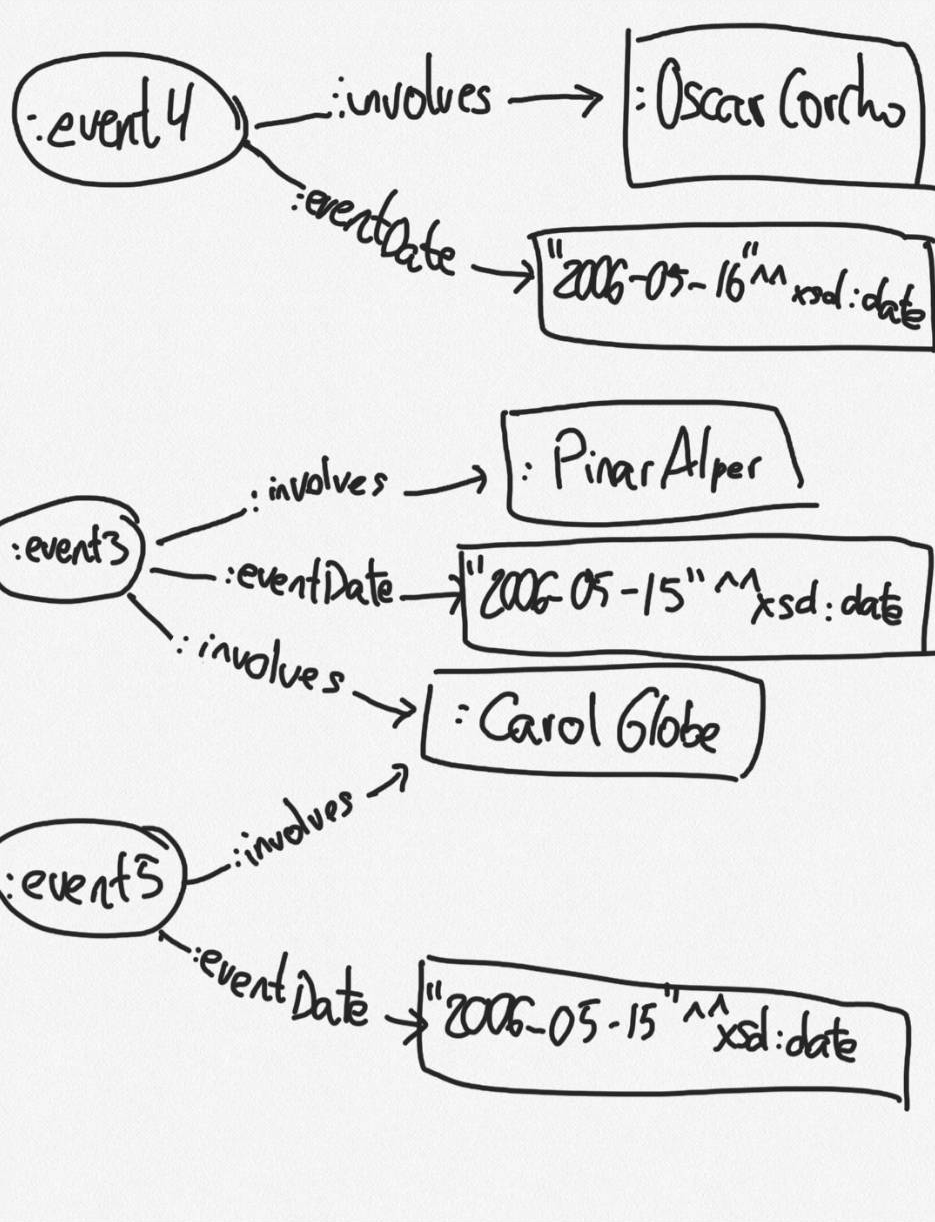 :event4
:involves
:Oscar Corcho
:eventDate
"2006-05-16"^^xsd:date
:event3
:involves
:Pinar Alper
:eventDate
"2006-05-15"^^xsd:date
:involves
:Carol Globe
:event5
:involves
:eventDate
"2006-05-15"^^xsd:date